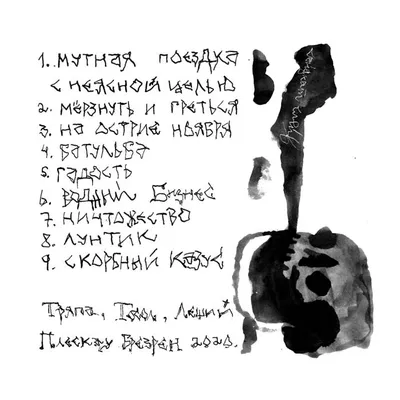 1. мутная поездка
с неясной целью
2. мёрзнуть и греться
3. на острие ноября
4. батульба
5. гадость
6. водный бизнес
7. ничтожество
8. лунтик
9. скорбный казус
Леший
2020.